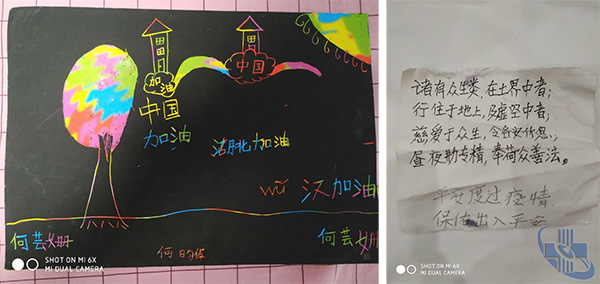 加油
中国
中国
加油
湖北加油
wǔ 汉加油
何芸姗
何芸姗
SHOT ON MI 6X
MI DUAL CAMERA
诸有众生类,在土界中者;
行住于地上,及虚空中者;
慈爱于众生,令各安休息,
昼夜勤专精,奉荷众善法。
平安度过疫情
保佑出入平安
SHOT ON MI 6X
MI DUAL CAMERA